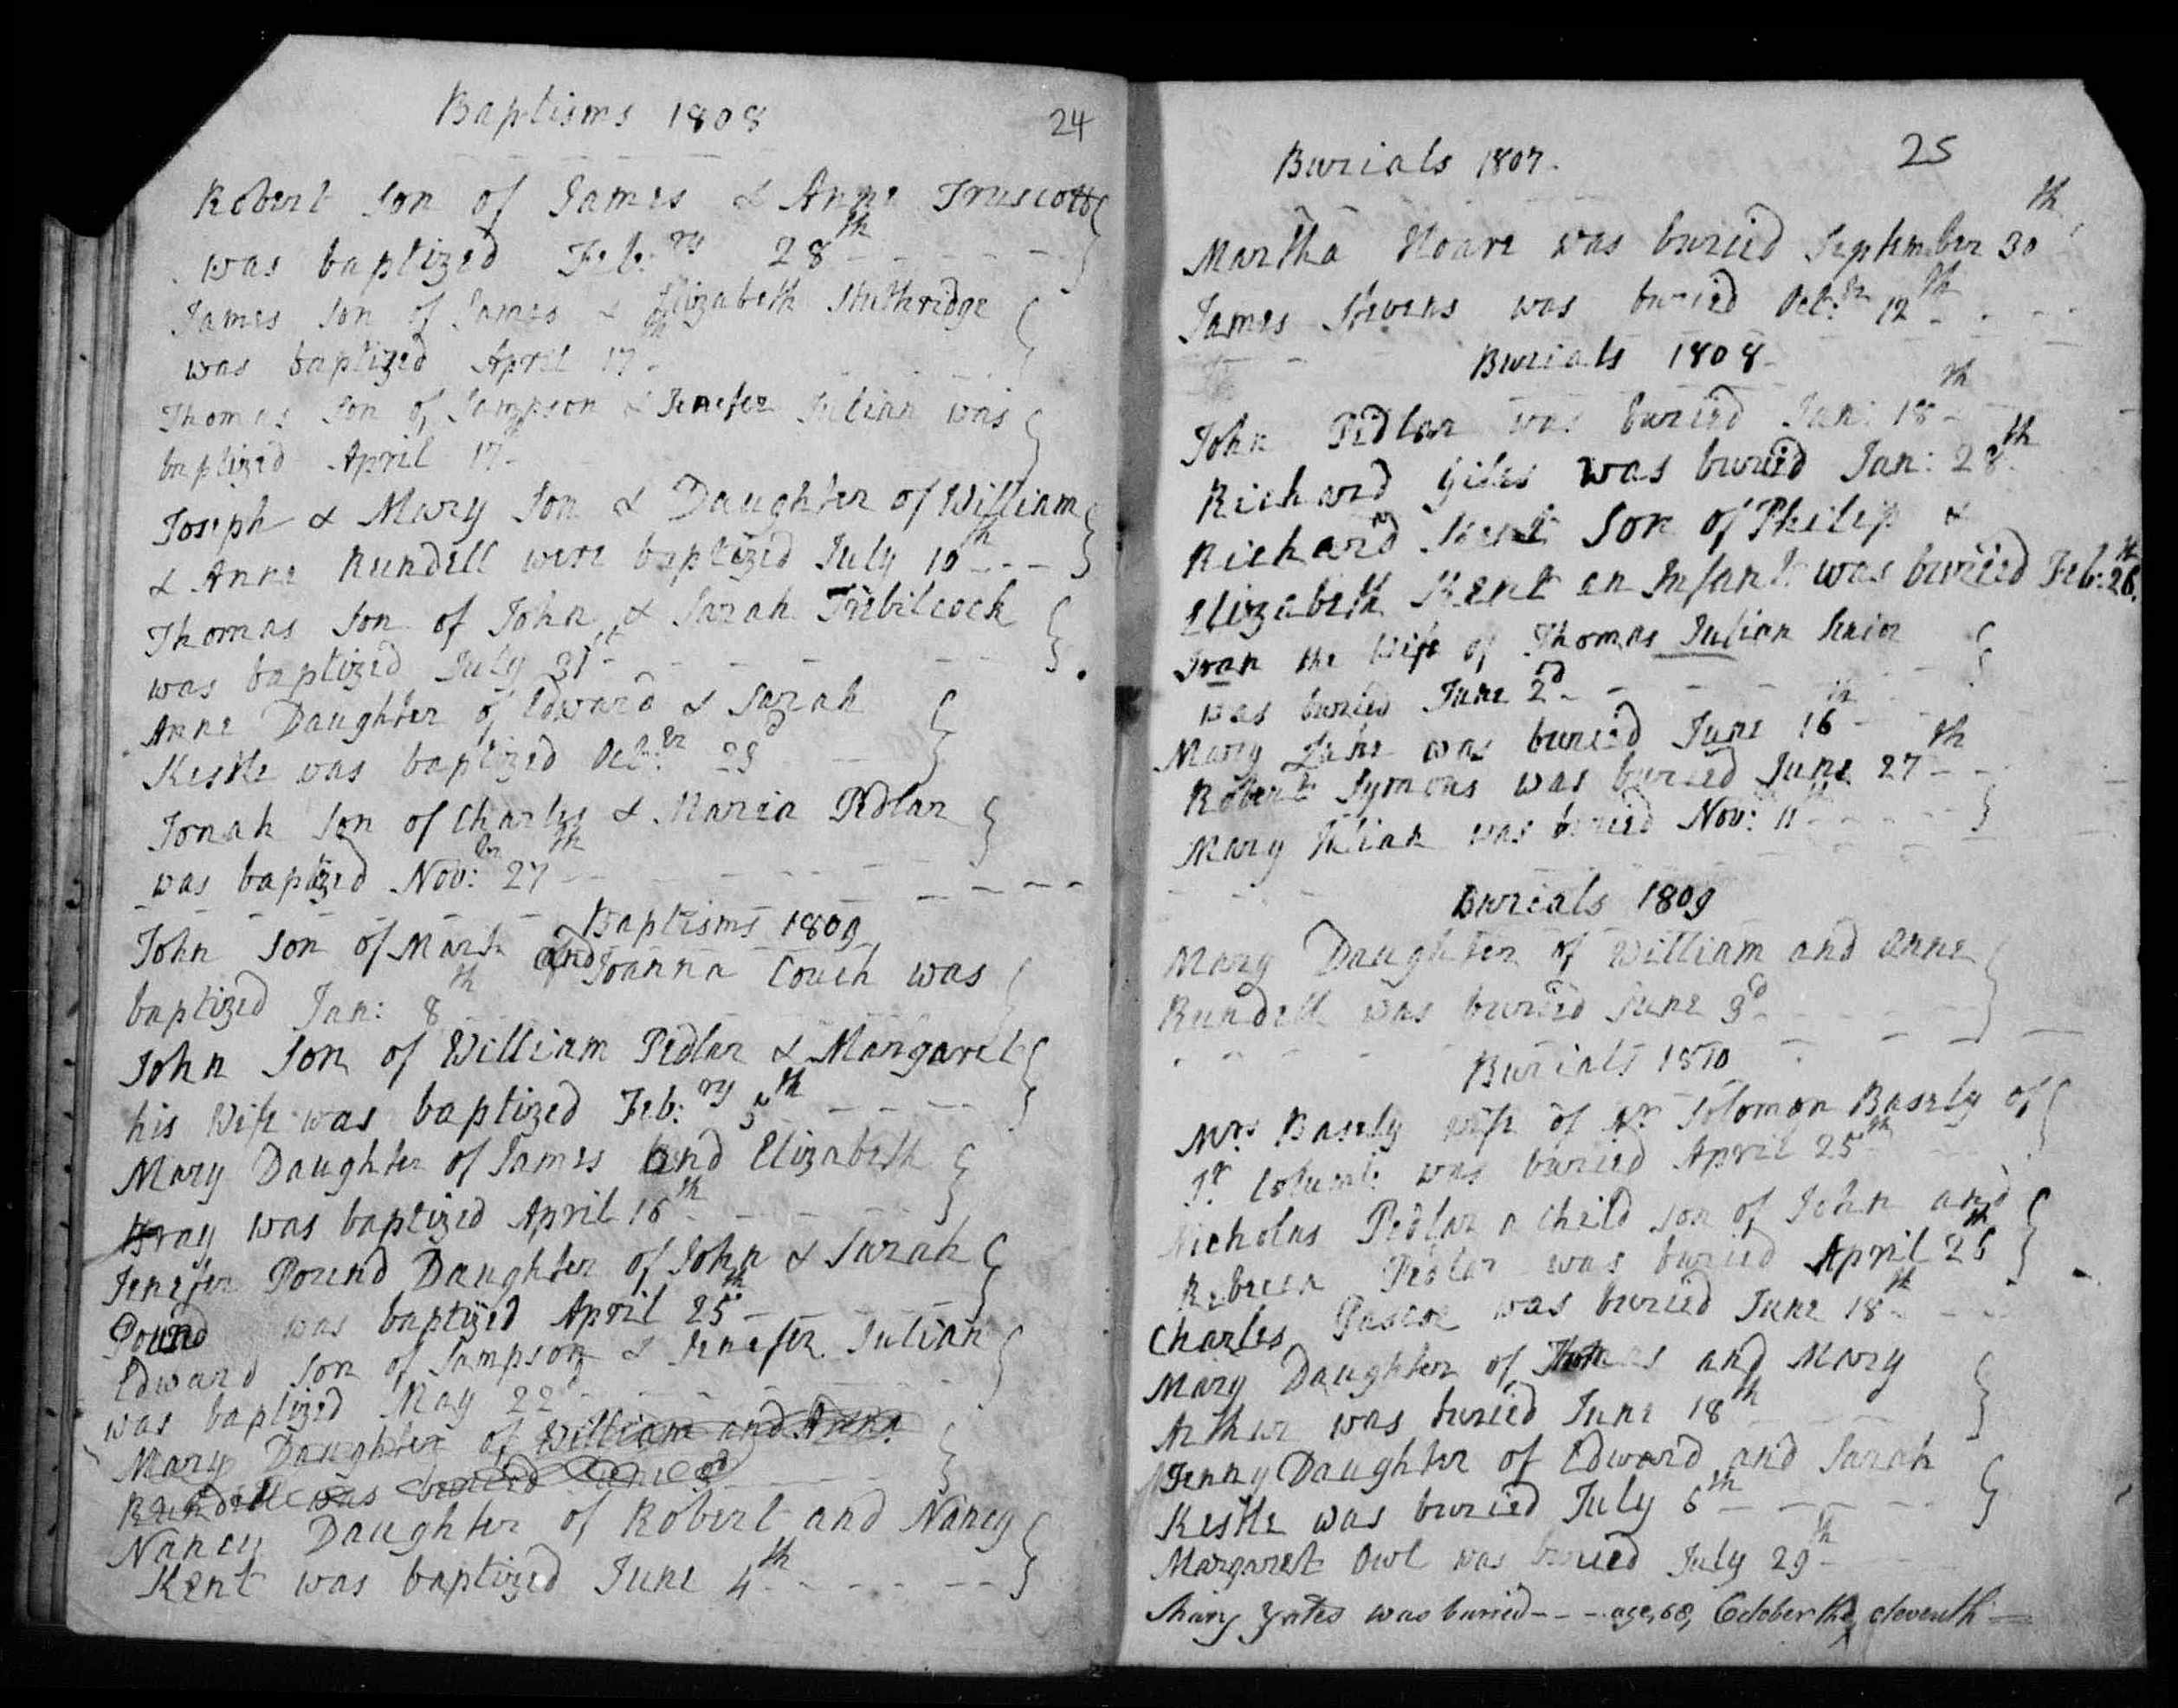 Baptisms 1808
24
Robert Son of James & Anne Truscott
was baptized Feb:ry 28th
James Son of James & Elizabeth Stuthridge
was baptized April 17th
Thomas Son of Sampson & Jenefer Julian was
baptized April 17th
Joseph & Mary Son & Daughter of William
& Anne Rundell were baptized July 10th
Thomas Son of John & Sarah Trebilcock
was baptized July 31st
Anne Daughter of Edward & Sarah
Kestle was baptized Oct:er 23d
Jonah Son of Charles & Maria Pedlar
was baptized Nov:er 27th
Baptisms 1809
John Son of Mark and Joanna Couch was
baptized Jan: 8th
John Son of William Pedlar & Margaret
his Wife was baptized Feb:ry 5th
Mary Daughter of James and Elizabeth
Bray was baptized April 16th
Jenefer Pound Daughter of John & Sarah
Pound was baptized April 25th
Edward Son of Sampson & Jenefer Julian
was baptized May 22d
Mary Daughter of William and Anne
Rundell was buried June 3d
Nancy Daughter of Robert and Nancy
Kent was baptized June 4th
Burials 1807
25
Martha Hoare was buried September 30th
James Stevens was buried Oct:er 12th
Burials 1808
John Pedlar was buried Jan: 18th
Richard Giles was buried Jan: 28th
Richard Kent Son of Philip &
Elizabeth Kent an Infant was buried Feb: 26th
Joan the Wife of Thomas Julian Senior
was buried June 2d
Mary Lake was buried June 16th
Robert Symons was buried June 27th
Mary Julian was buried Nov: 11th
Burials 1809
Mary Daughter of William and Anne
Rundell was buried June 3d
Burials 1810
Mrs Basely wife of Mr Solomon Basely of
St Columb was buried April 25th
Nicholas Pedlar a Child son of John and
Rebecca Pedlar was buried April 26th
Charles Pascoe was buried June 18th
Mary Daughter of Thomas and Mary
Arthur was buried June 18th
Jenny Daughter of Edward and Sarah
Kestle was buried July 6th
Margaret Owl was buried July 29th
Mary Yates was buried - - - age, 68, October the eleventh